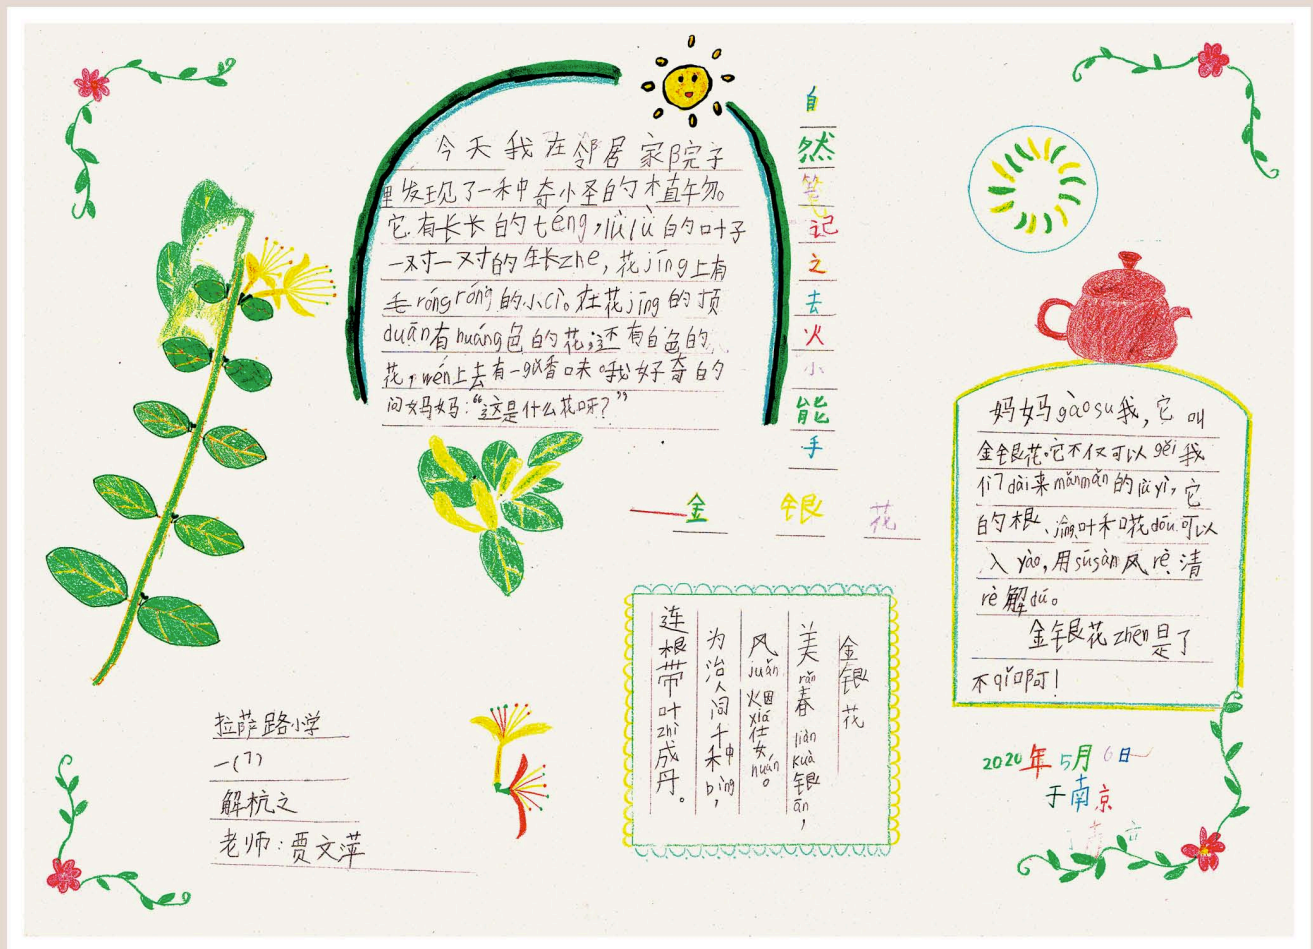 自然笔记之去火小能手
—金银花
今天我在邻居家院子
里发现了一种奇小圣的植物。
它有长长的téng,lǜlǜ的叶子
一对一对的生长zhe,花jīng上有
毛róngróng的小cì。在花jīng的顶
duān有huáng色的花,还有白色的
花,wén上去有一gǔ香味。我好奇的
问妈妈:“这是什么花呀?”
妈妈gàosu我,它叫
金银花。它不仅可以gěi我
们dài来mǎnmǎn的lǜyì,它
的根、jīng、叶和花dōu可以
入yào,用sūsàn风rè、清
rè解dú。
金银花zhēn是了
不qǐ啊!
金银花
美rǎn春liàn kuà银ān,
风juǎn烟xiá仕女huán。
为治人间千种bìng,
连根带叶zhì成丹。
拉萨路小学
一(7)
解杭之
老师:贾文萍
2020年5月6日
于南京